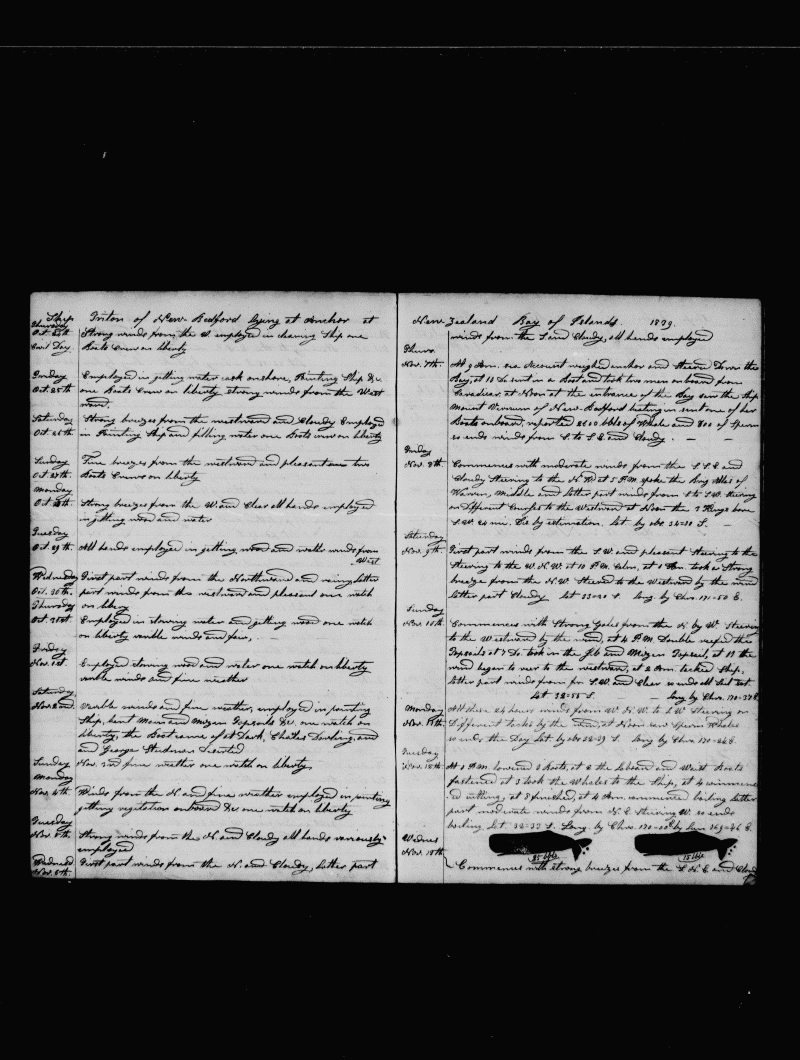 Ship Triton of New Bedford lying at Anchor at
Thursday
Oct 24th Strong winds from the W. employed in cleaning Ship one
Civil Day Boats Crew on liberty
Friday Employed in getting water cask on shore, Painting Ship &c.
Oct. 25th one Boats Crew on liberty strong winds from the West
ward.
Saturday Strong breezes from the westward and Cloudy Employed
Oct 26th in Painting Ship and filling water one Boats crew on liberty
Sunday Fine breezes from the westward and pleasant two
Oct 27th Boats Crews on liberty
Monday
Oct 28th Strong breezes from the W. and Clear all hands employed
in getting wood and water
Tuesday
Oct. 29th All hands employed in getting wood and water winds from
West
Wednesday First part winds from the Northward and rainy latter
Oct. 30th part winds from the westward and pleasant one watch
Thursday on liberty
Oct 31st Employed in stowing water and getting wood one watch
on liberty varible winds and fair,
Friday
Nov. 1st Employed stowing wood and water one watch on liberty
varble winds and fine weather
Saturday
Nov 2nd Varible winds and fine weather, employed in painting
Ship, bent Main and Mizen Topsails &c. one watch on
liberty, the Boat came off at Dark, Charles and
and George deserted
Sunday Nov. 3rd fine weather one watch on liberty
Monday
Nov 4th Winds from the N and fine weather employed in painting
getting vegetables onboard &c one watch on liberty
Tuesday
Nov 5th Strong winds from the N and Cloudy all hands variously
employed
Wednesd First part winds from the N. and Cloudy, latter part
Nov. 6th
New Zealand Bay of Islands. 1839
winds from the S and Cloudy, all hands employed
Thurs.
Nov. 7th. At 9 Am. weighed anchor and Steered Down the
Bay, at 11 Do sent in a Boat and took two men onboard from
at Noon at the entrance of the Bay saw the Ship
Mount Vernon of New Bedford beating in sent one of her
Boats onboard, reported 2600 bbls of Whale and 800 of Sperm
so ends winds from S. to S.E. and Cloudy. — —
Friday
Nov. 8th Commences with moderate winds from the S.S.E and
Cloudy Steering to the N.W at 5 P.M. spoke the Brig of
Warren, Middle and latter part winds from S to S.W. steering
on Different Courses to the Westward at Noon the 3 Kings bore
S.W. 24 mi. Dis by estimation. Lat by obs 34=00 S. —
Saturday
Nov. 9th First part winds from the S.W. and pleasant Steering to the
Steering to the W.N.W. at 10 P.M. Calm, at 1 Am. took a Strong
breeze from the N.W. Steered to the Westward by the wind
latter part Cloudy Lat 33=20 S. Long. by Chro. 171=50 E.
Sunday
Nov. 10th Commences with Strong Gales from the N by W. Steering
to the Westward by the wind, at 4 P.M. Double reefed the
Topsails at 7 Do. took in the Jib and Mizen Topsail, at 12 the
wind began to veer to the westward, at 2 Am. tacked Ship,
latter part winds from S.W. and Clear so ends all but
Lat 32=55 S. — Long by Chro. 170=37 E
Monday All these 24 hours winds from W.N.W. to S.W Steering on
Nov. 11th Different tacks by the wind, at Noon saw Sperm Whales
so ends the Day Lat by obs 32=29 S. Long by Chro. 170=24 E.
Tuesday
Nov. 12th At 1 P.M. lowered 3 Boats, at 2 the Larboard and Waist Boats
fastened at 3 took the Whales to the Ship, at 4 commenc
ed cutting, at 8 finished, at 4 Am. commenced boiling latter
part moderate winds from N.E. Steering W. so ends
boiling Lat 32=33 S. Long. by Chro. 170=00 by Lun 169=46 E.
Wednes
Nov. 13th 25 bbls 15 bbls
Commences with strong breezes from the S.N.E. and Cloudy